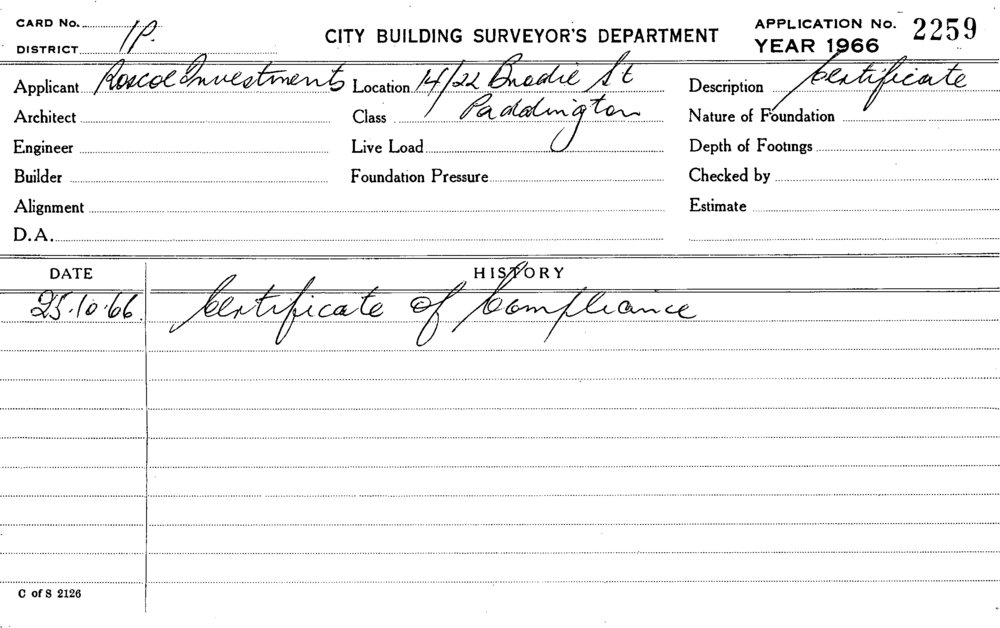 CARD No.
DISTRICT 1P.
CITY BUILDING SURVEYOR'S DEPARTMENT
APPLICATION No. 2259
YEAR 1966
Applicant Roscoe Investments Location 14/22 Brodie St Description Certificate
Architect Class Paddington Nature of Foundation
Engineer Live Load Depth of Footings
Builder Foundation Pressure Checked by
Alignment Estimate
D.A.
DATE HISTORY
25.10.66 Certificate of Compliance
C of S 2126